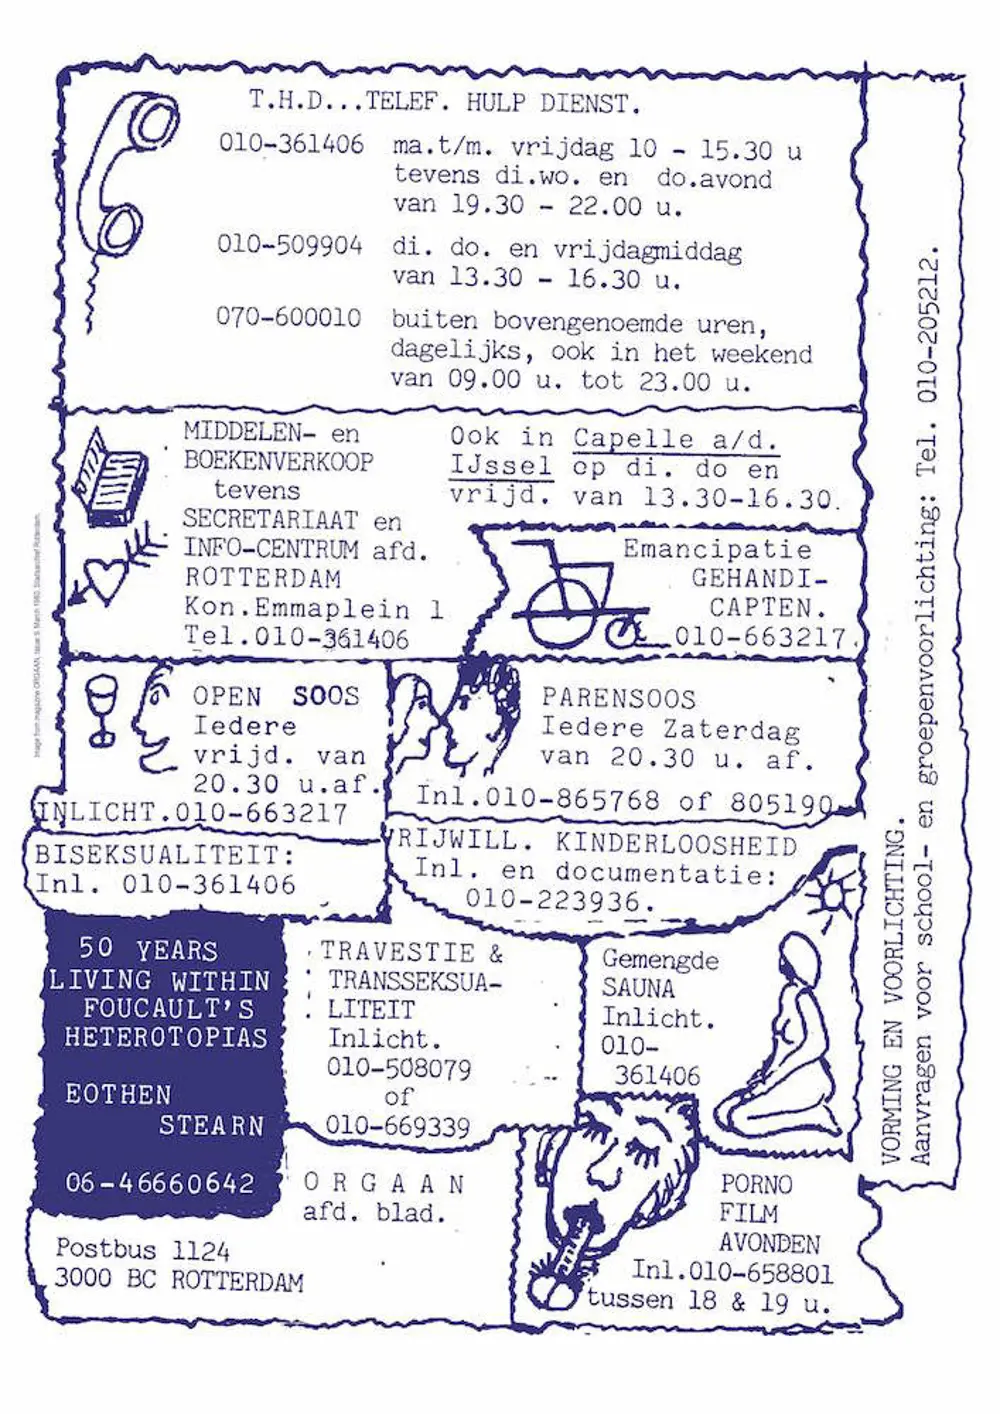 T.H.D...TELEF. HULP DIENST.
010-361406 ma.t/m. vrijdag 10 - 15.30 u
tevens di.wo. en do.avond
van 19.30 - 22.00 u.
010-509904 di. do. en vrijdagmiddag
van 13.30 - 16.30 u.
070-600010 buiten bovengenoemde uren,
dagelijks, ook in het weekend
van 09.00 u. tot 23.00 u.
MIDDELEN- en
BOEKENVERKOOP
tevens
SECRETARIAAT en
INFO-CENTRUM afd.
ROTTERDAM
Kon.Emmaplein 1
Tel.010-361406
Ook in Capelle a/d.
IJssel op di. do en
vrijd. van 13.30-16.30.
Emancipatie
GEHANDI-
CAPTEN.
010-663217.
OPEN SOOS
Iedere
vrijd. van
20.30 u.af.
INLICHT.010-663217
PARENSOOS
Iedere Zaterdag
van 20.30 u. af.
Inl.010-865768 of 805190
BISEKSUALITEIT:
Inl. 010-361406
VRIJWILL. KINDERLOOSHEID
Inl. en documentatie:
010-223936.
50 YEARS
LIVING WITHIN
FOUCAULT'S
HETEROTOPIAS
EOTHEN
STEARN
06-46660642
TRAVESTIE &
TRANSSEKSUA-
LITEIT
Inlicht.
010-508079
of
010-669339
Gemengde
SAUNA
Inlicht.
010-
361406
ORGAAN
afd. blad.
Postbus 1124
3000 BC ROTTERDAM
PORNO
FILM
AVONDEN
Inl.010-658801
tussen 18 & 19 u.
VORMING EN VOORLICHTING.
Aanvragen voor school- en groepenvoorlichting: Tel. 010-205212.
Image from magazine ORGAAN, Issue 9, March 1980, Stadsarchief Rotterdam.